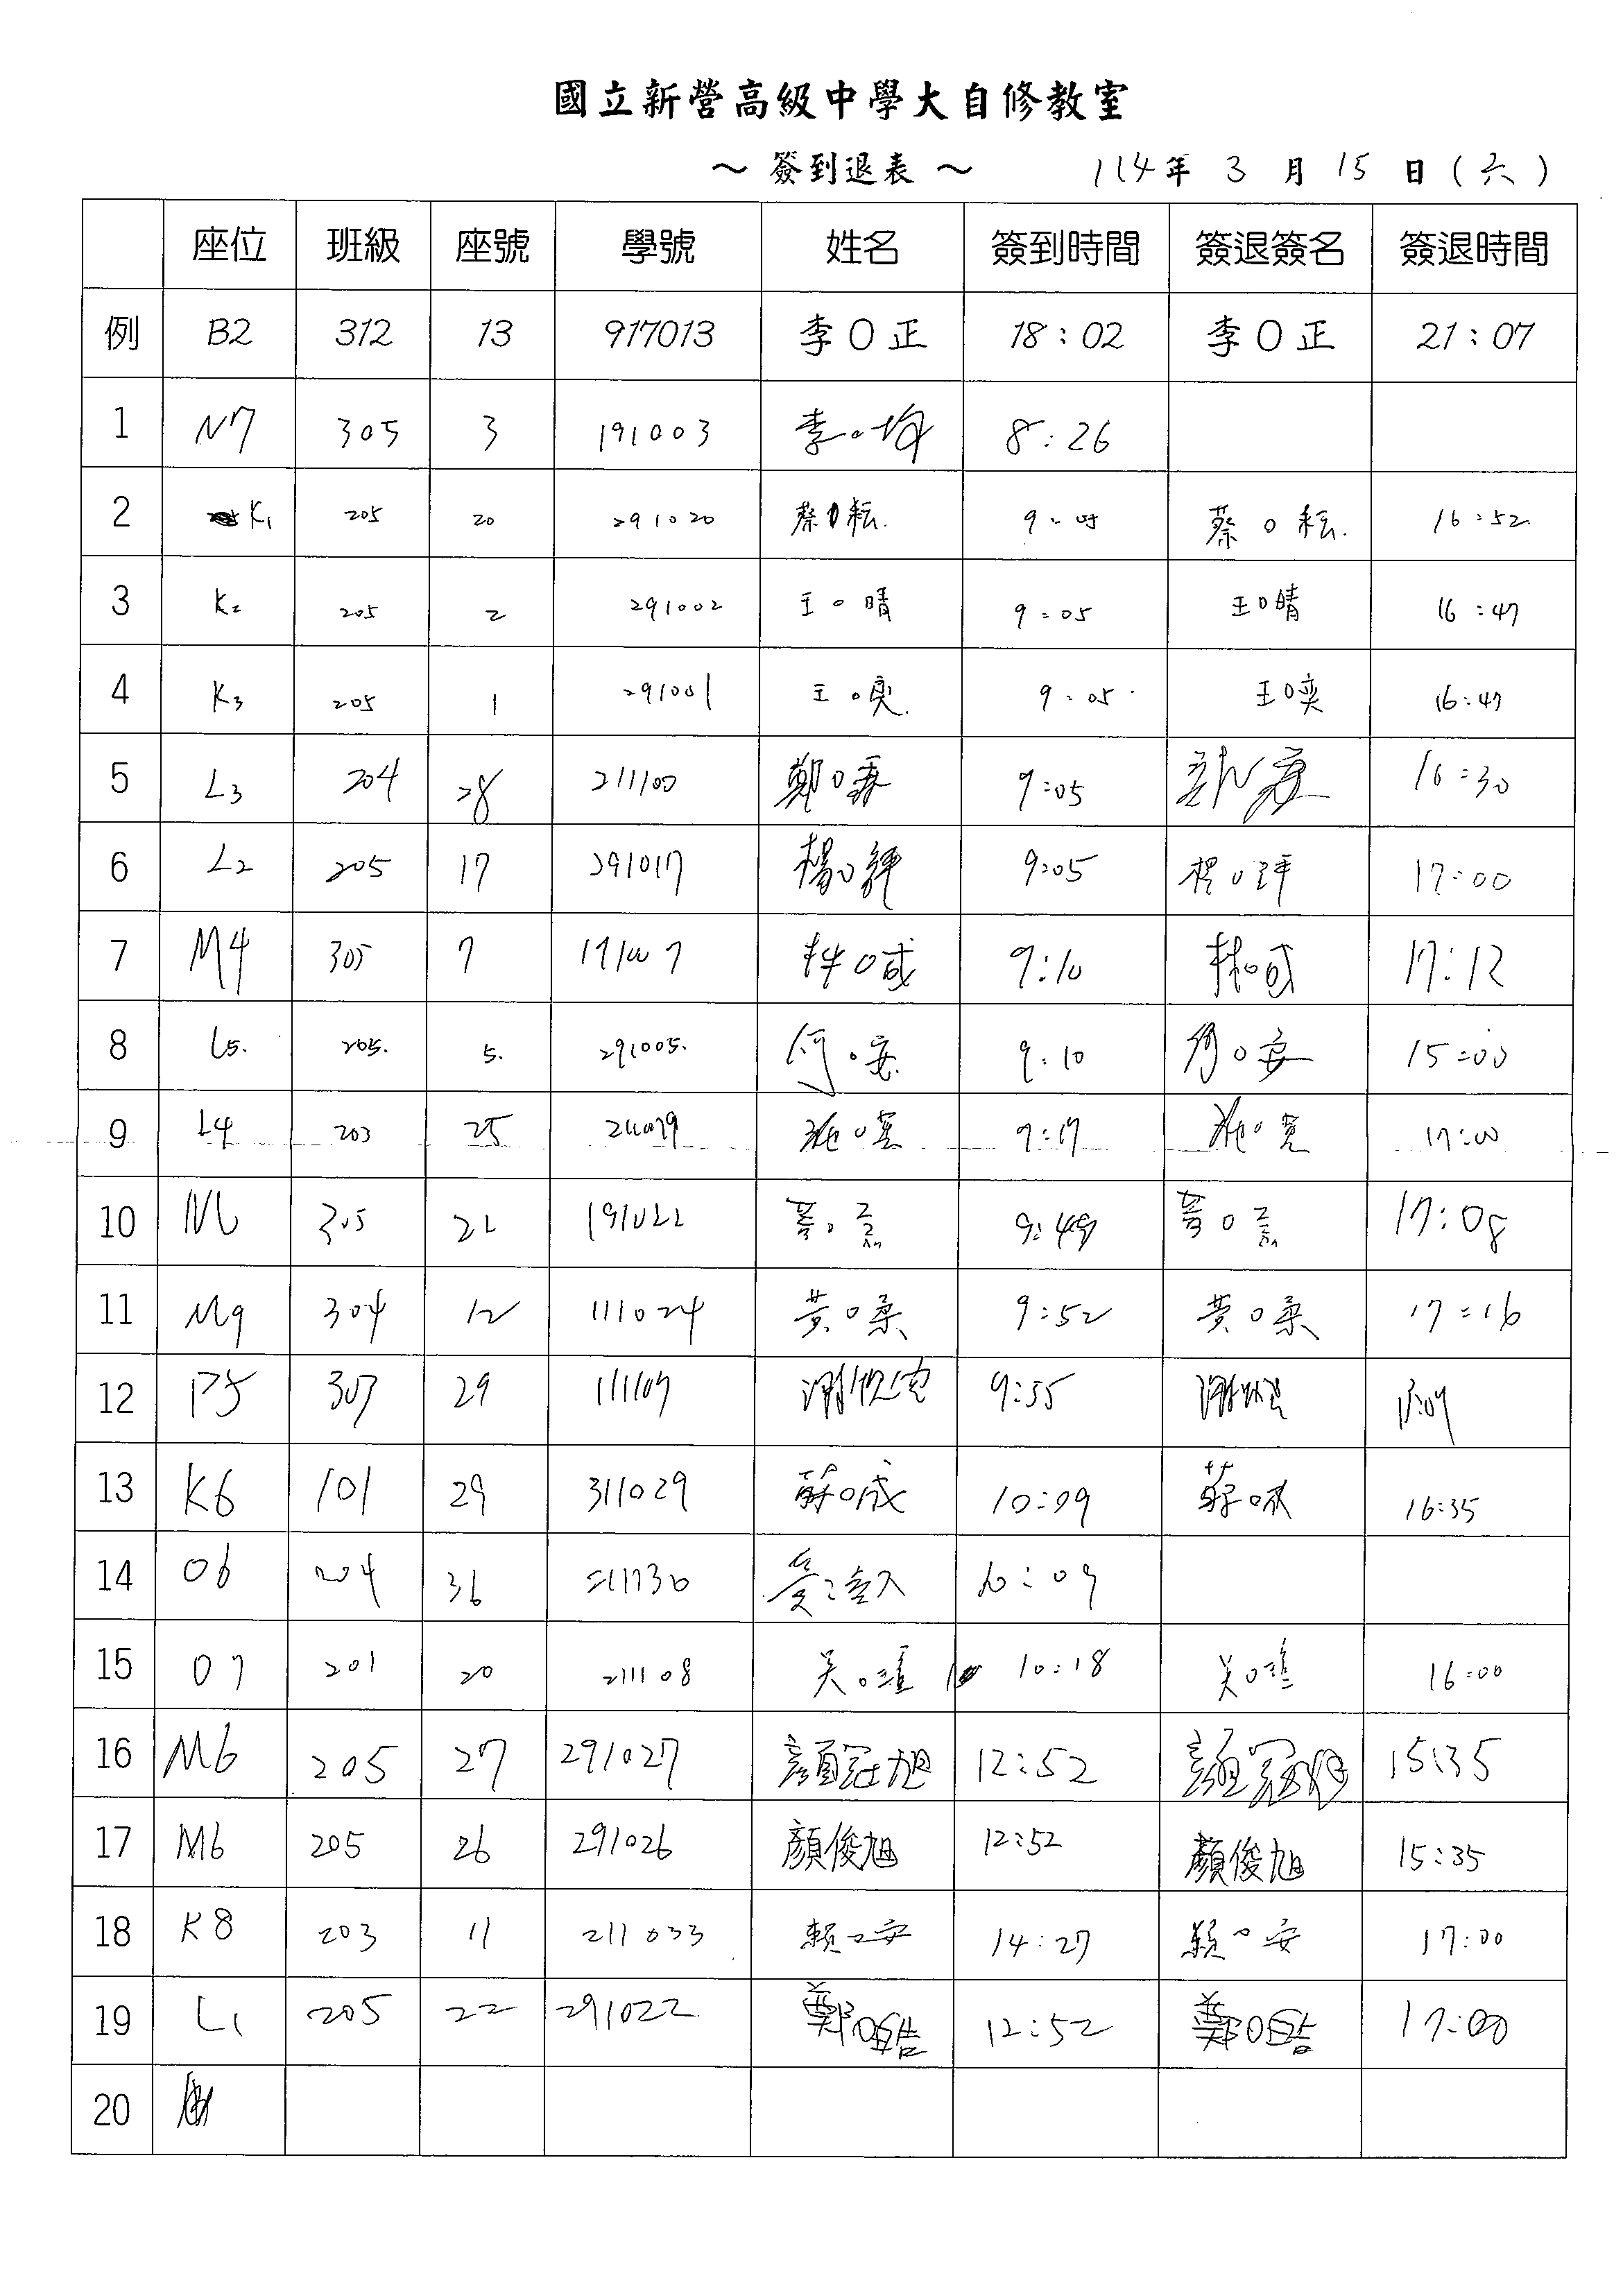 國立新營高級中學大自修教室
～ 簽到退表 ～ 114年 3 月 15 日 (六)
座位 班級 座號 學號 姓名 簽到時間 簽退簽名 簽退時間
例 B2 312 13 917013 李O正 18:02 李O正 21:07
1 N7 305 3 191003 李O均 8:26
2 K1 205 20 291020 蔡O耘 9: 蔡O耘. 16:52
3 K2 205 2 291002 王O晴 9:05 王O晴 16:47
4 K3 205 1 291001 王O奕 9:05 王O奕 16:47
5 L3 204 28 211100 鄭O霖 9:05 16:30
6 L2 205 17 291017 楊O評 9:05 楊O評 17:00
7 M4 305 7 191007 林O彧 9:10 林O彧 17:12
8 L5. 205. 5. 291005. 何O安 9:10 何O安 15:00
9 L4 203 25 施O寬 9:17 施O寬 17:00
10 305 22 191022 9:49 17:08
11 M9 304 12 111024 黃O柔 9:52 黃O柔 17:16
12 P5 307 29 9:55
13 K6 101 29 311029 蘇O成 10:09 蘇O成 16:35
14 O6 204 36 10:09
15 O7 201 20 211108 吳O瑾 10:18 吳O瑾 16:00
16 M6 205 27 291027 顏冠旭 12:52 顏冠旭 15:35
17 M6 205 26 291026 顏俊旭 12:52 顏俊旭 15:35
18 K8 203 11 211033 賴O安 14:27 賴O安 17:00
19 L1 205 22 291022 鄭O皓 12:52 鄭O皓 17:00
20